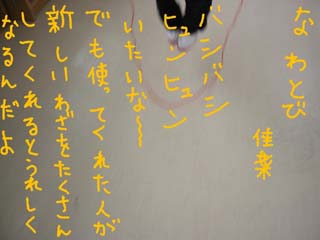 なわとび
佳楽
バシバシ
ヒュンヒュン
いたいな〜〜
でも使ってくれた人が
新しいわざをたくさん
してくれるとうれしく
なるんだよ